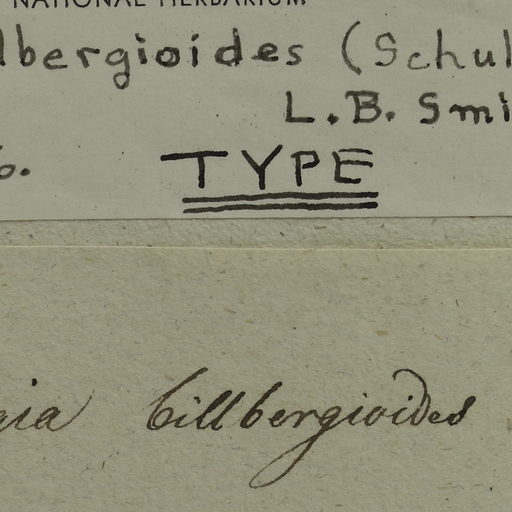 NATIONAL HERBARIUM
lbergioides (Schul
L.B. Smi
o. TYPE
gia billbergioides